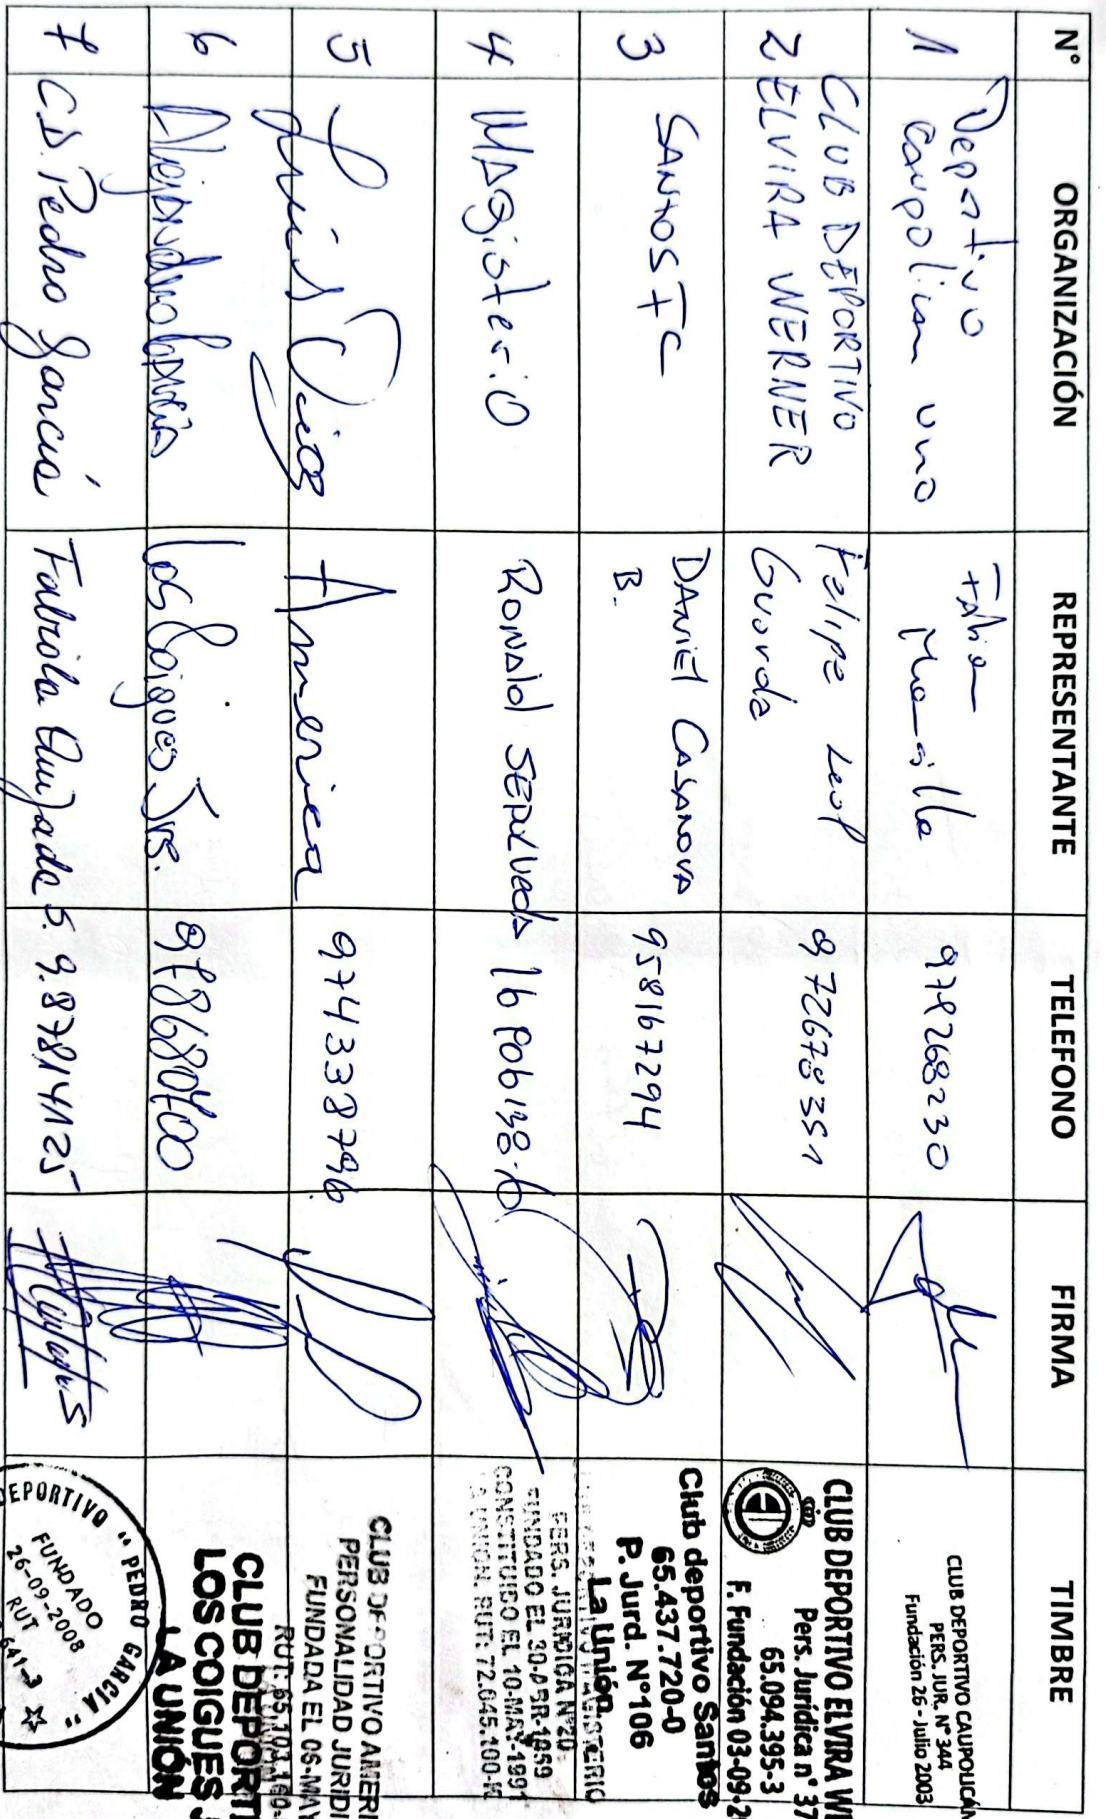 N° ORGANIZACIÓN REPRESENTANTE TELEFONO FIRMA TIMBRE
1 Deportivo
Caupolican uno
Fabian
Mansilla
978268230
CLUB DEPORTIVO CAUPOLICÁN
PERS. JUR. N° 344
Fundación 26 - Julio 2003
2 CLUB DEPORTIVO
ELVIRA WERNER
Felipe Leal
Guarda
972678351
CLUB DEPORTIVO ELVIRA WE
Pers. Jurídica n° 37
65.094.395-3
F. Fundación 03-09-2
3 SANTOS FC
DANIEL CASANOVA
B.
958167294
Club deportivo Santos
65.437.720-0
P. Jurd. N°106
La Unión
4 MAgisteriO
RONAld SEPULVEDA
MAGISTERIO
PERS. JURIDICA N°20
FUNDADO EL 30-ABR-1969
CONSTITUIDO EL 10-MAY-1991
LA UNION. RUT: 72.045.100-
5 Luis
America
974338796
CLUB DEPORTIVO AMERI
PERSONALIDAD JURIDI
FUNDADA EL 06-MAY
RUT: 65.103.
6 Alejandro
Los Coigues Jrs.
978680700
CLUB DEPORTI
LOS COIGUES
LA UNIÓN
7 C.D. Pedro García
Fabiola Quijada S.
9.87814125
DEPORTIVO "PEDRO GARCIA"
FUNDADO
26-09-2008
RUT
641-3